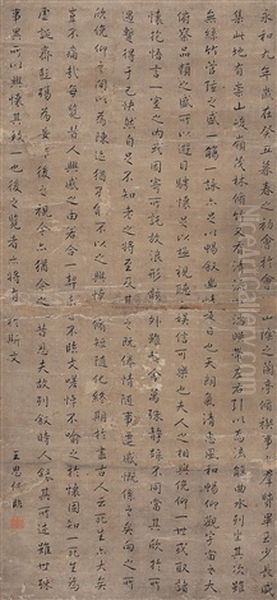 永和九年歲在癸丑暮春之初會於會山陰之蘭脩禊事也群賢畢至少長咸
集此地有崇山峻領茂林脩竹又有清流激湍暎帶左右引以為流觴曲水列坐其次雖
無絲竹管弦之盛一觴一詠亦足以暢敘幽情是日也天朗氣清惠風和暢仰觀宇宙之大
俯察品類之盛所以遊目騁懷足以極視聽之娛信可樂也夫人之相與俯仰一世或取諸
懷抱悟言一室之內或因寄所託放浪形骸之外雖趣舍萬殊靜躁不同當其欣於所
遇暫得於己快然自足不知老之將至及其所之既倦情隨事遷感慨係之矣向之所
欣俛仰之間以為陳迹猶不能不以之興懷況脩短隨化終期於盡古人云死生亦大矣
豈不痛哉每覽昔人興感之由若合一契未嘗不臨文嗟悼不能喻之於懷固知一死生為
虛誕齊彭殤為妄作後之視今亦猶今之視昔悲夫故列敘時人錄其所述雖世殊
事異所以興懷其致一也後之覽者亦將有感於斯文
王思任臨